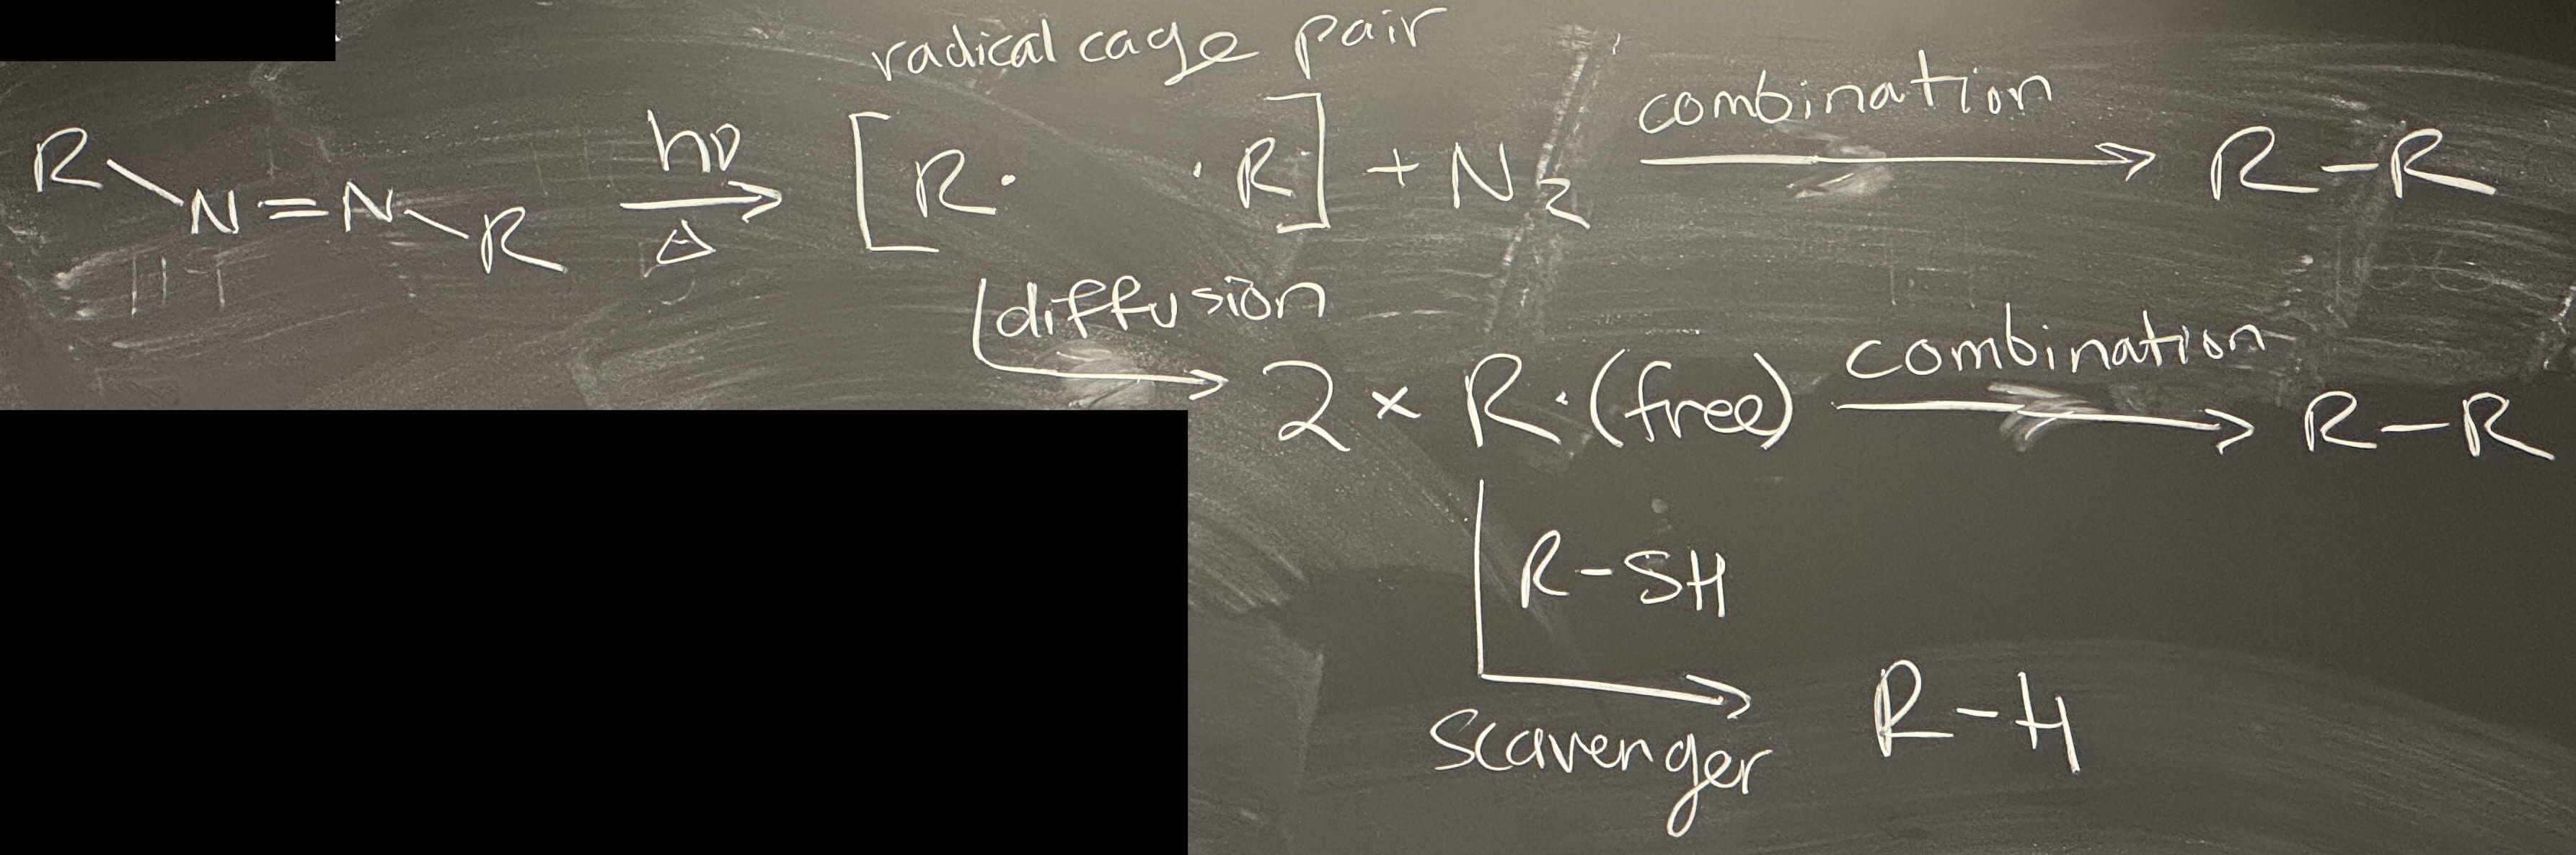 radical cage pair
R N=N R hν Δ [R· ·R] + N₂ combination R-R
diffusion
2 × R· (free) combination R-R
R-SH
scavenger R-H